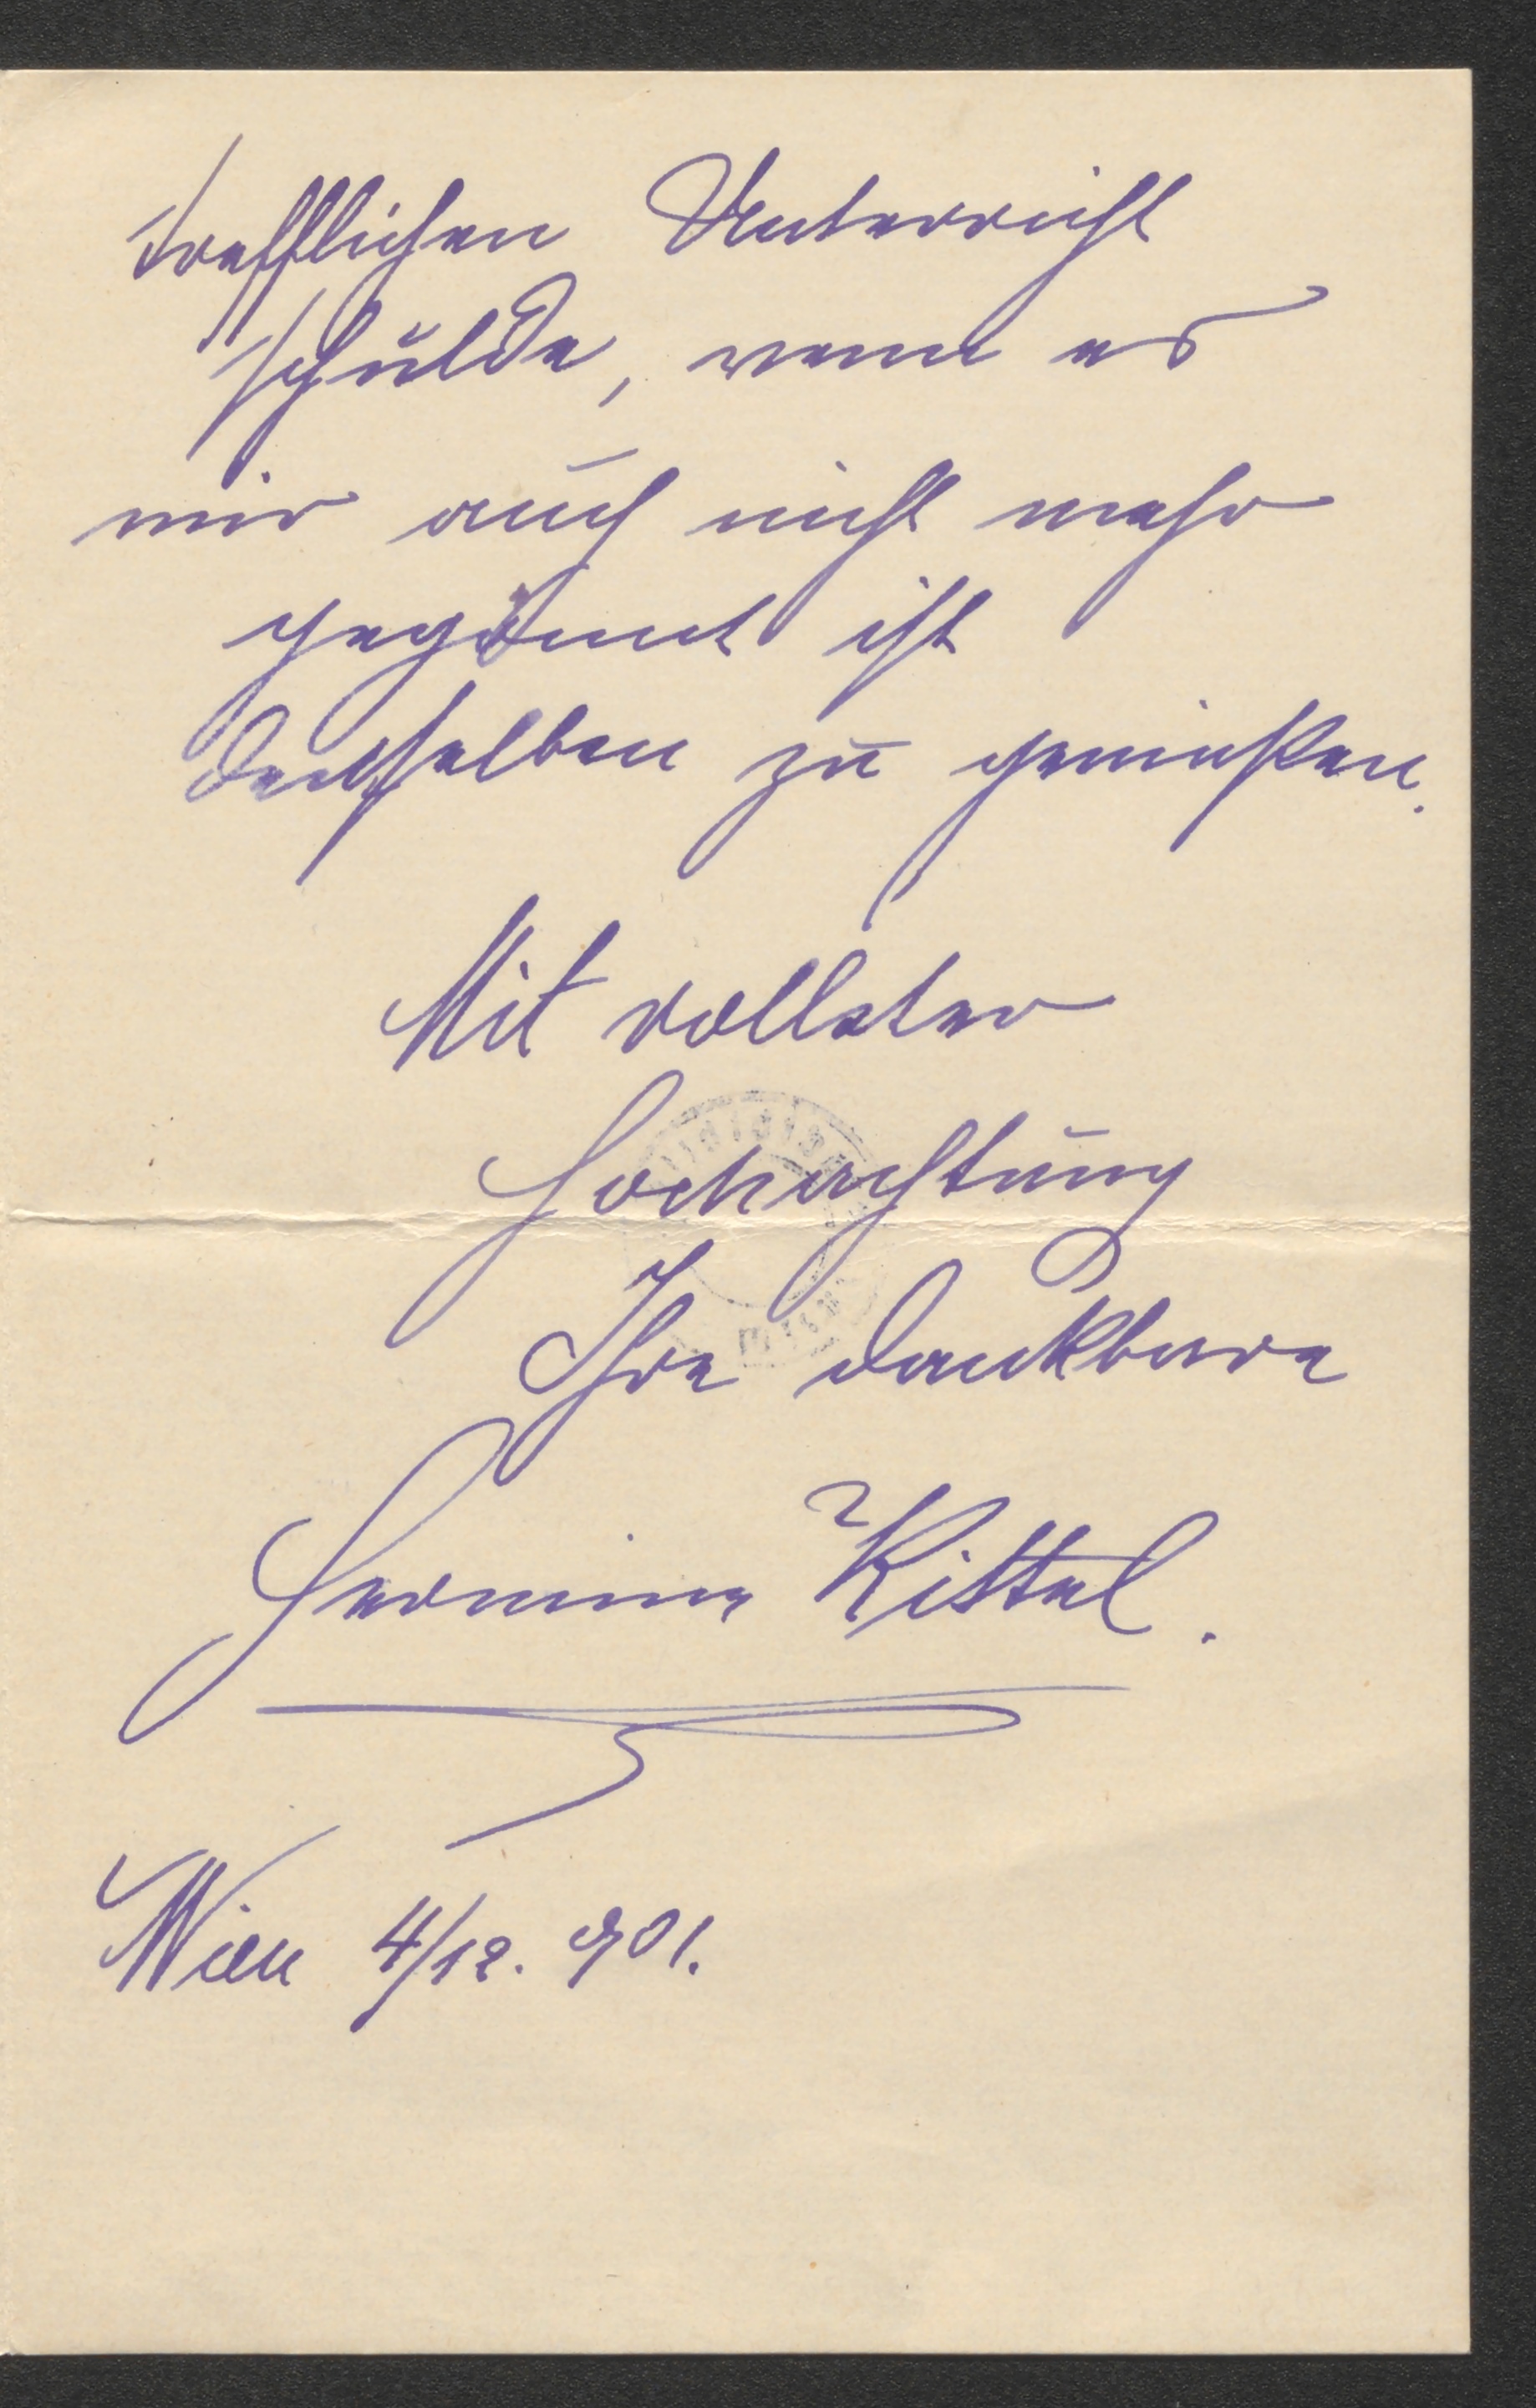 trefflichen Unterricht
schulde, wenn es
mir auch nicht mehr
gegönnt ist
denselben zu genießen.
Mit vollster
Hochachtung
Ihre dankbare
Hermine Kittel.
Wien 4/12. 901.